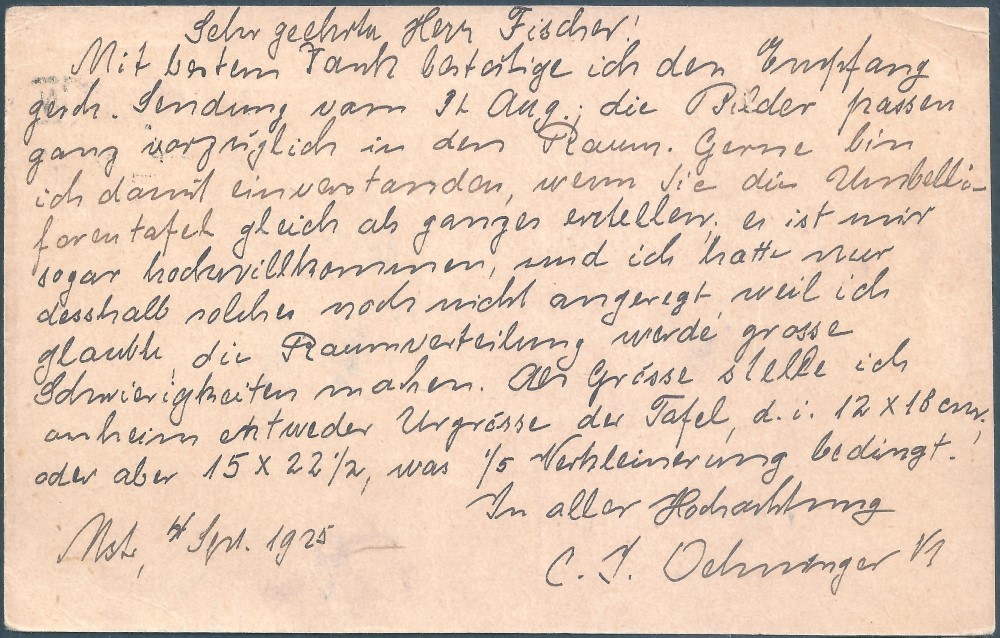 Sehr geehrter Herr Fischer!
Mit bestem Dank bestätige ich den Empfang
gesch. Sendung vom 31. Aug.; die Bilder passen
ganz vorzüglich in den Raum. Gerne bin
ich damit einverstanden, wenn Sie die Umbelli-
ferentafel gleich als ganzes erstellen; es ist mir
sogar hochwillkommen, und ich hatte nur
desshalb solches noch nicht angeregt, weil ich
glaubte, die Raumverteilung werde grosse
Schwierigkeiten machen. Als Grösse stelle ich
anheim entweder Urgrösse der Tafel, d. i. 12 x 18 cm,
oder aber 15 x 22 1/2, was 1/5 Verkleinerung bedingt.
In aller Hochachtung
4 Sept. 1925
C. J.